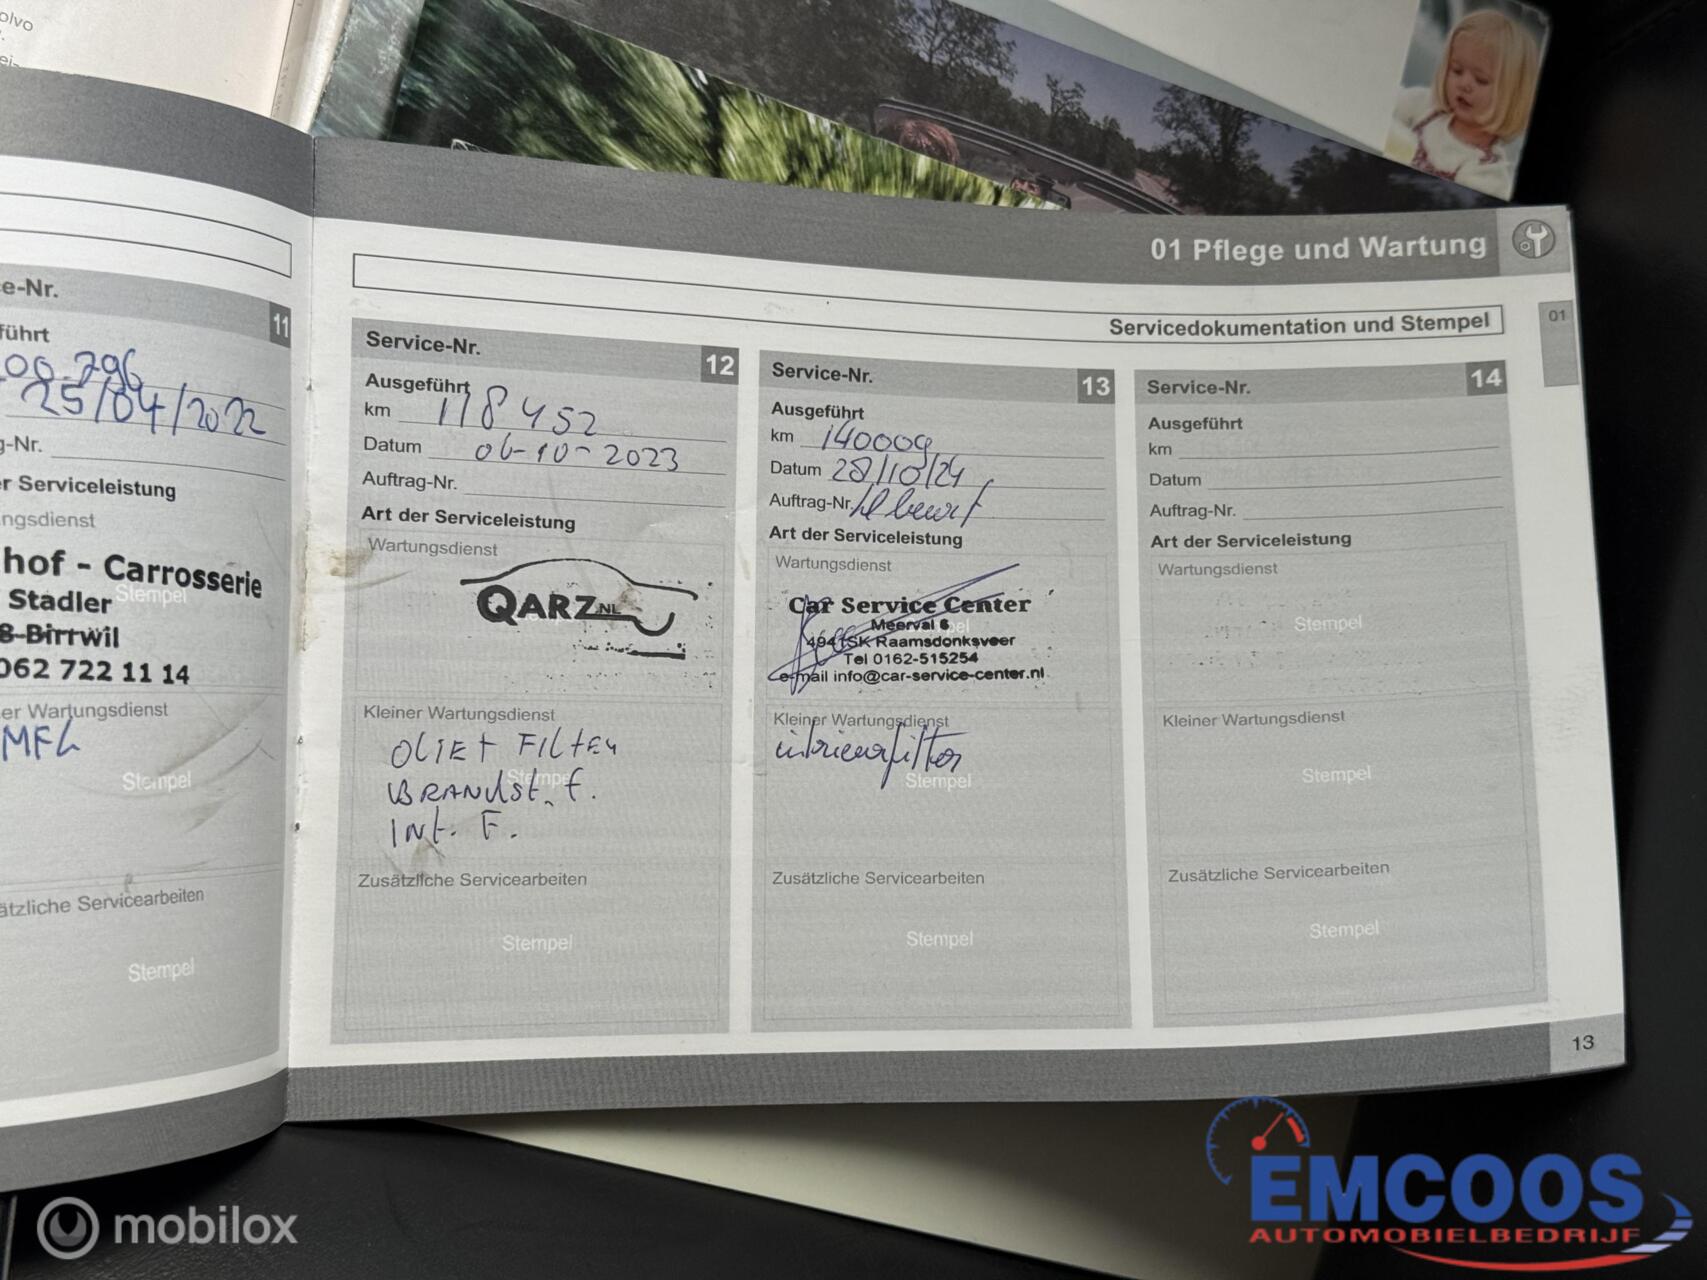 olvo
01 Pflege und Wartung
Servicedokumentation und Stempel
01
e-Nr.
11
führt
00.296
25/04/2022
g-Nr.
r Serviceleistung
ngsdienst
hof - Carrosserie
Stempel
Stadler
8-Birrwil
062 722 11 14
er Wartungsdienst
MFL
Stempel
ätzliche Servicearbeiten
Stempel
Service-Nr.
12
Ausgeführt
km 118452
Datum 06-10-2023
Auftrag-Nr.
Art der Serviceleistung
Wartungsdienst
QARZ.NL
Kleiner Wartungsdienst
OLIE + FILTER
BRANdSt. f.
Stempel
INt. F.
Zusätzliche Servicearbeiten
Stempel
Service-Nr.
13
Ausgeführt
km 140009
Datum 28/10/24
Auftrag-Nr. kl beurt
Art der Serviceleistung
Wartungsdienst
Car Service Center
Meerval 6
4941SK Raamsdonksveer
Tel 0162-515254
e-mail info@car-service-center.nl
Kleiner Wartungsdienst
intrieurfilter
Stempel
Zusätzliche Servicearbeiten
Stempel
Service-Nr.
14
Ausgeführt
km
Datum
Auftrag-Nr.
Art der Serviceleistung
Wartungsdienst
Stempel
Kleiner Wartungsdienst
Stempel
Zusätzliche Servicearbeiten
Stempel
13
mobilox
EMCOOS
AUTOMOBIELBEDRIJF